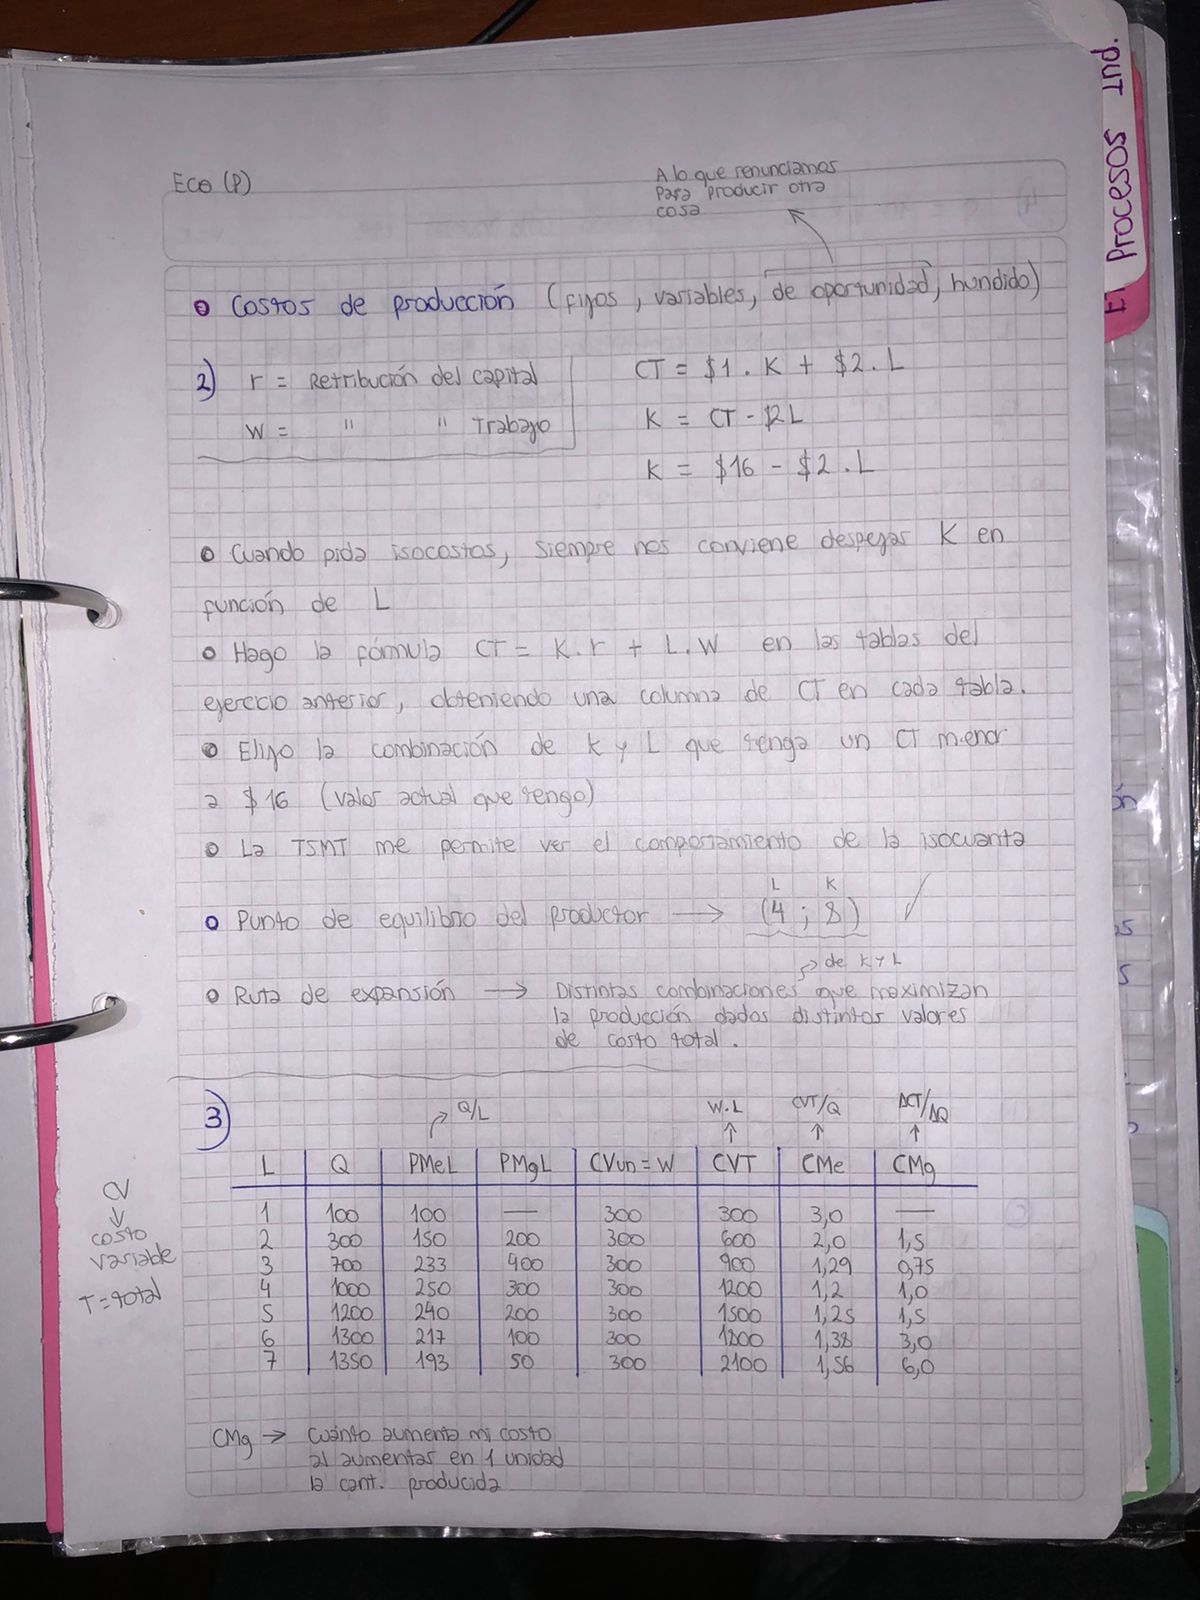 Eco (P)
A lo que renunciamos
para producir otra
cosa
Costos de producción (fijos, variables, de oportunidad, hundido)
2) r = Retribución del capital
w = " " Trabajo
CT = $1 . K + $2 . L
K = CT - $2L
K = $16 - $2 . L
Cuando pida isocostos, siempre nos conviene despejar K en
función de L
Hago la fórmula CT = K.r + L.W en las tablas del
ejercicio anterior, obteniendo una columna de CT en cada tabla.
Elijo la combinación de K y L que tenga un CT menor
a $16 (valor actual que tengo)
La TSMT me permite ver el comportamiento de la isocuanta
L K
Punto de equilibrio del productor → (4 ; 8)
de K y L
Ruta de expansión → Distintas combinaciones que maximizan
la producción dados distintos valores
de costo total.
3)
Q/L W.L CVT/Q ΔCT/ΔQ
L Q PMeL PMgL CVun = W CVT CMe CMg
1 100 100 — 300 300 3,0 —
2 300 150 200 300 600 2,0 1,5
3 700 233 400 300 900 1,29 0,75
4 1000 250 300 300 1200 1,2 1,0
5 1200 240 200 300 1500 1,25 1,5
6 1300 217 100 300 1800 1,38 3,0
7 1350 193 50 300 2100 1,56 6,0
CV
↓
costo
variable
T = total
CMg → cuánto aumenta mi costo
al aumentar en 1 unidad
la cant. producida
Procesos Ind.